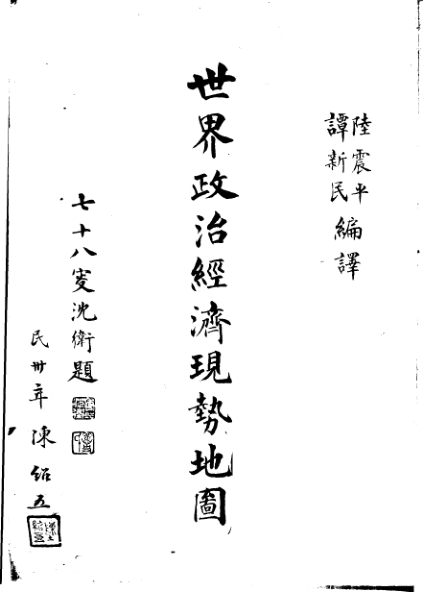 陸震平
譚新民
編譯
世界政治經濟現勢地圖
七十八叟沈衛題
民卅年陳紹五